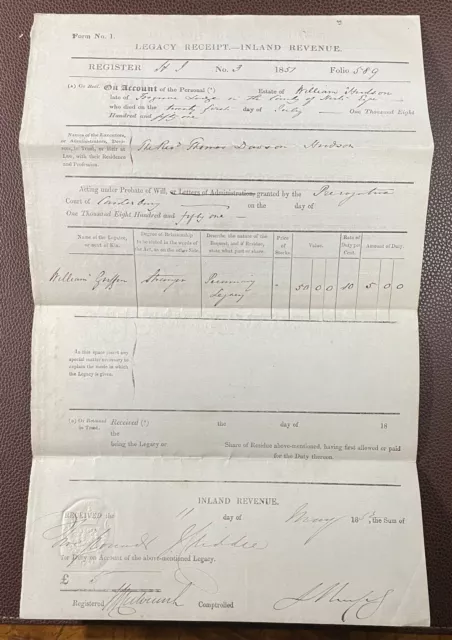 Form No. 1.
LEGACY RECEIPT.—INLAND REVENUE.
REGISTER No. 3 1851 Folio 589
On Account of the Personal Estate of William Hudson
late of Lodge in the County of
who died on the twenty first day of July — One Thousand Eight
Hundred and fifty one —
Names of the Executors, or Administrators, Trustees, in Trust, or Heir at Law, with their Residence and Profession
The Revd Thomas Dawson Hudson
Acting under Probate of Will, or Letters of Administration, granted by the Prerogative
Court of Canterbury on the day of
One Thousand Eight Hundred and fifty one —
Name of the Legatee, or next of Kin.
Degree of Relationship
Describe the nature of the Bequest, and if Residue, state what part or share.
Price of Stocks.
Value.
Rate of Duty per Cent.
Amount of Duty.
William Griffin Stranger Pecuniary Legacy 50 0 0 10 5 0 0
In this space insert any special matter necessary to explain the mode in which the Legacy is given.
Received the day of 18
the
being the Legacy or Share of Residue above-mentioned, having first allowed or paid
for the Duty thereon.
INLAND REVENUE.
RECEIVED the 11 day of the Sum of
for Duty on Account of the above-mentioned Legacy.
£ 5
Registered Comptrolled